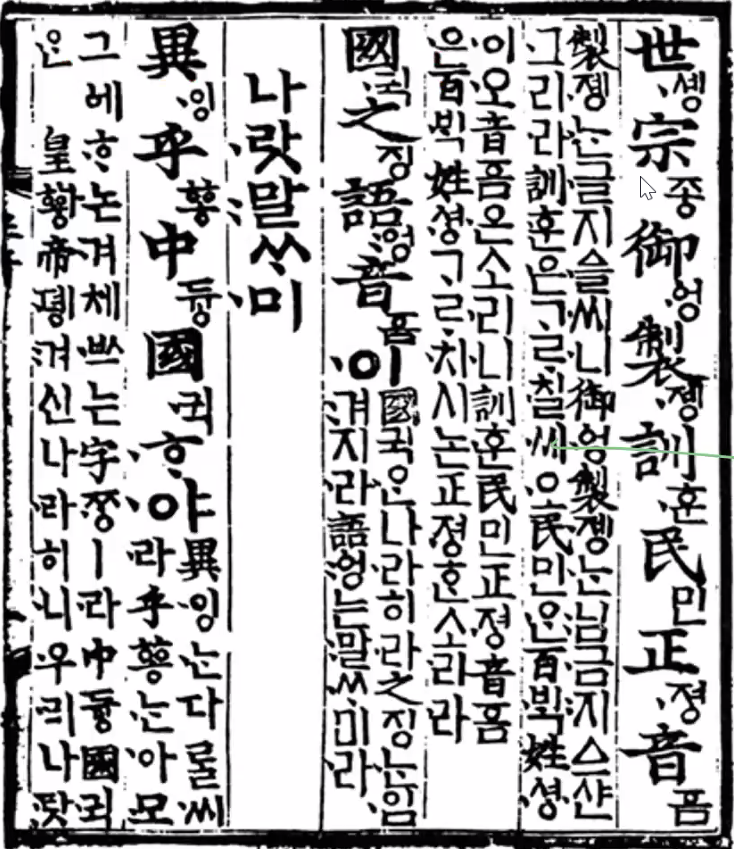 世솅宗종御ᅌᅥᆼ製졩訓훈民민正졍音ᅙᅳᆷ
製졩ᄂᆞᆫ글지ᅀᅳᆯ씨니御ᅌᅥᆼ製졩ᄂᆞᆫ님금지ᅀᅳ샨
그리라訓훈은ᄀᆞᄅᆞ칠씨오民민ᄋᆞᆫ百ᄇᆡᆨ姓셩
이오音ᅙᅳᆷ은소리니訓훈民민正졍音ᅙᅳᆷ
은百ᄇᆡᆨ姓셩ᄀᆞᄅᆞ치시논正졍ᄒᆞᆫ소리라
國귁之징語ᅌᅥᆼ音ᅙᅳᆷ이
國귁ᄋᆞᆫ나라히라之징ᄂᆞᆫ입
겨지라語ᅌᅥᆼ는말ᄊᆞ미라
나랏말ᄊᆞ미
異잉乎ᅘᅩᆼ中듀ᇰ國귁ᄒᆞ야
異잉ᄂᆞᆫ다ᄅᆞᆯ씨
라乎ᅘᅩᆼᄂᆞᆫ아모
그ᅌᅦᄒᆞ논겨체ᄡᅳ는字ᄍᆞᆼㅣ라中듀ᇰ國귁
ᄋᆞᆫ皇ᅘᅪᆼ帝뎽겨신나라히니우리나랏